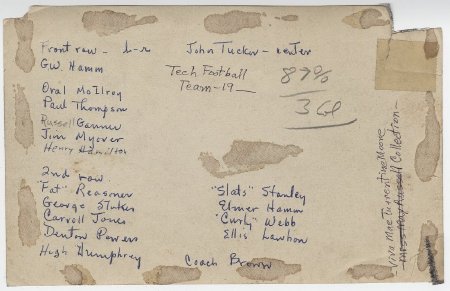 Front row - L-R
John Tucker - center
G.W. Hamm
Tech Football
Team - 19 -
87%
3 Col
Oral McIlroy
Paul Thompson
Russell Ganner
Jim Myover
Henry Hamilton
2nd row.
"Fat" Reasoner
George Stokes
Carroll Jones
Denton Powers
High Humphrey
"Slats" Stanley
Elmer Hamm
"Curly" Webb
Ellis Lawhon
Coach Brown
Viva Mae Moore
Miss May Russell Collection -